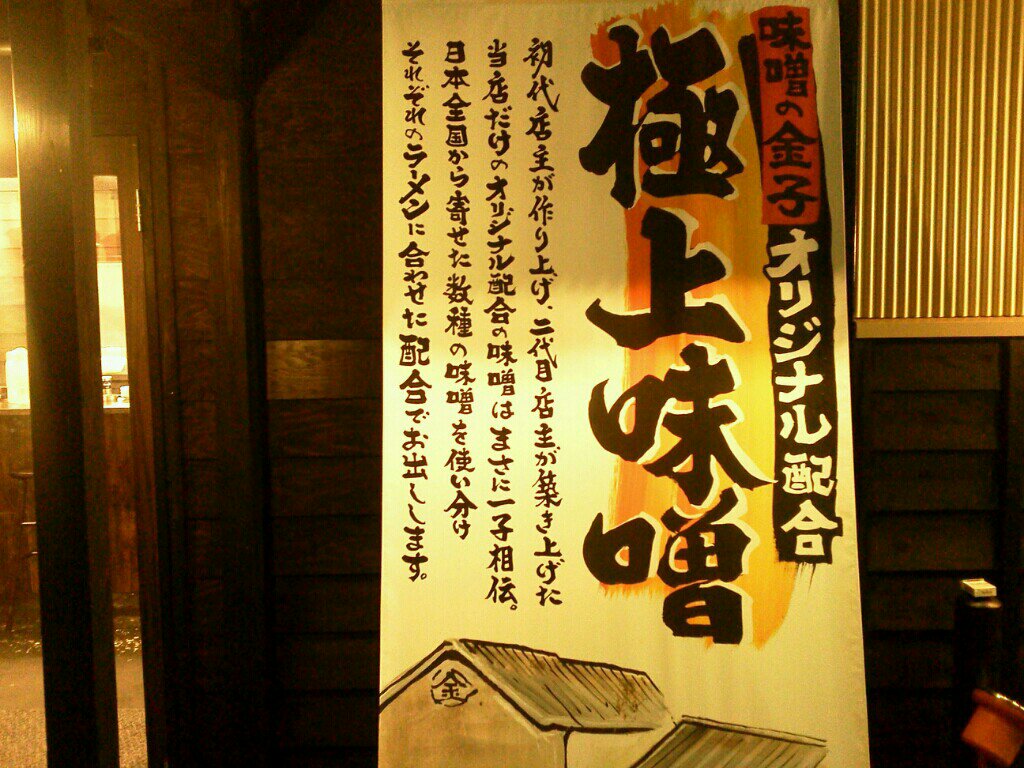 味噌の金子オリジナル配合
極上味噌
初代店主が作り上げ、二代目店主が築き上げた
当店だけのオリジナル配合の味噌はまさに一子相伝。
日本全国から寄せた数種の味噌を使い分け
それぞれのラーメンに合わせた配合でお出しします。
金